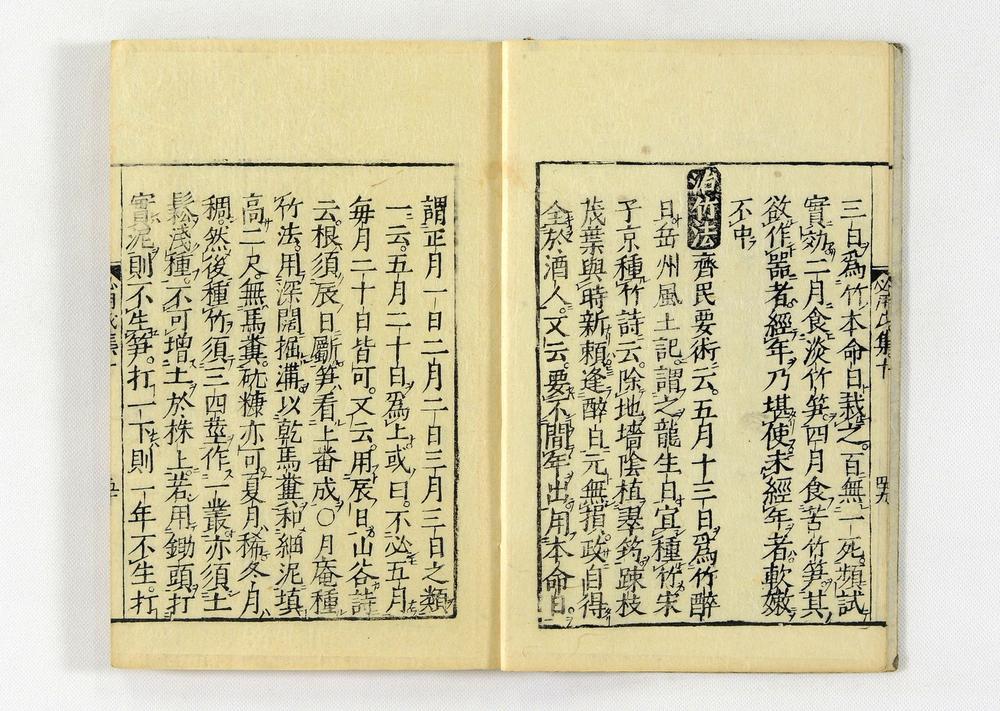 三日爲竹本命日栽之百無一死頻試
實効二月食淡竹笋四月食苦竹笋其
欲作噐者經年乃堪使未經年者軟嫩
不中
竹法 齊民要術云五月十三日爲竹醉
日岳州風土記謂之龍生日宜種竹宋
子京種竹詩云除地墻陰植翠筠踈枝
茂葉與時新賴逢醉日元無損政自得
全於酒人又云要不間年出用本命日
謂正月一日二月二日三月三日之類
一云五月二十日爲上或曰不必五月
每月二十日皆可又云用辰日山谷詩
云根須辰日斸笋看上番成〇月庵種
竹法用深闊掘溝以乾馬糞和細泥填
高二尺無馬糞礱糠亦可夏月稀冬月
稠然後種竹須三四莖作一叢亦須土
鬆淺種不可增土於株上若用鋤頭打
實泥則不生笋打一下則一年不生打